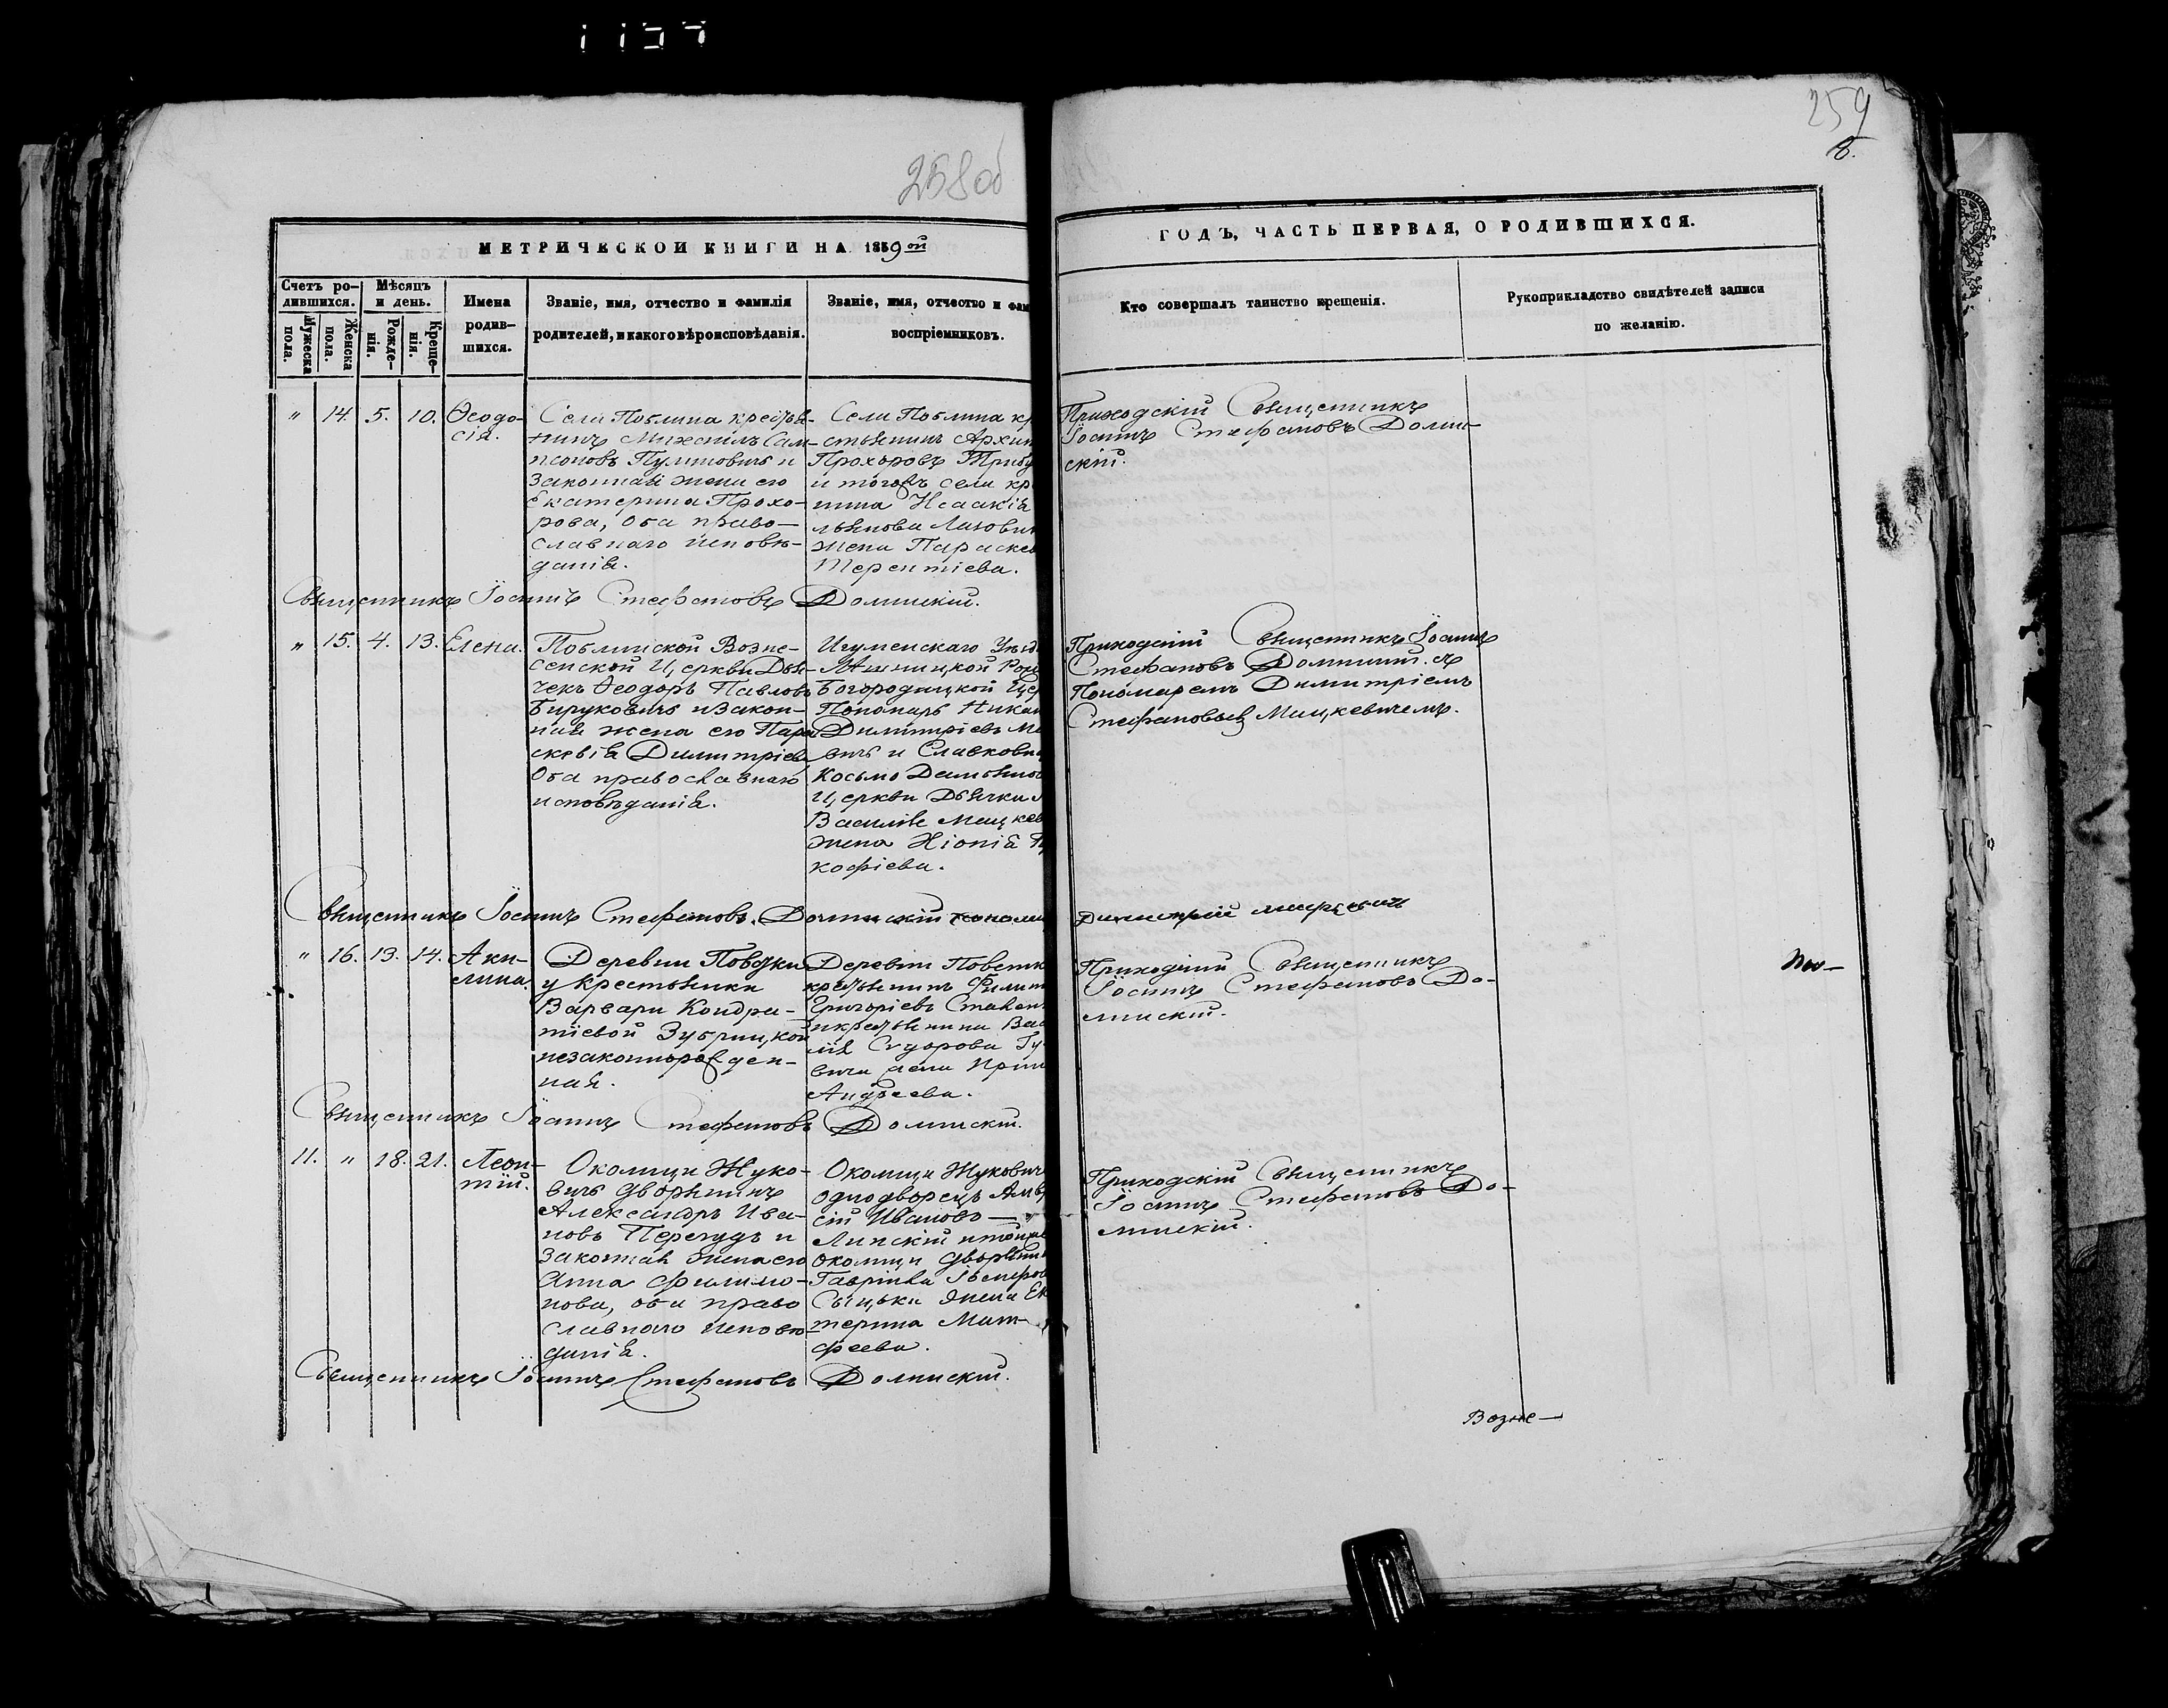 258об
259
8.
МЕТРИЧЕСКОЙ КНИГИ НА 1859ой
ГОДЪ, ЧАСТЬ ПЕРВАЯ, О РОДИВШИХСЯ.
Счетъ ро-
дившихся.
Мужеска
пола.
Женска
пола.
Мѣсяцъ
и день.
Рожде-
нія.
Креще-
нія.
Имена
родив-
шихся.
Званіе, имя, отчество и фамилія
родителей, и какого вѣроисповѣданія.
Званіе, имя, отчество и фам
воспріемниковъ.
Кто совершалъ таинство крещенія.
Рукоприкладство свидѣтелей записи
по желанію.
" 14. 5. 10. Ѳеодо-
сія.
Села Поблина крестья-
нинъ Михаилъ Сам-
псоновъ и
Законная жена его
Екатерина Прохо-
рова, оба право-
славнаго исповѣ-
данія.
Села Поблина кр
стьянинъ Архип
Прохоровъ
и тогожъ села кр
нина Исаакія
жена Параскев
Терентіева.
Приходскій Священникъ
Іоаннъ Стефановъ Долин-
скій.
Священникъ Іоаннъ Стефановъ Долинскій.
" 15. 4. 13. Елена.
Поблинской Возне-
сенской Церкви Дья-
чекъ Ѳеодоръ Павловъ
Бируковичъ и Закон-
ная жена его Пара
скевія Димитріева
Оба православнаго
исповѣданія.
Игуменскаго Уѣзд
Богородицкой Цер
Пономарь Никан
Димитріевъ Ма
вичъ и Славкови
Косьмо Даміянов
Церкви Дьячка
Василія Мацкев
жена Хіонія
кофіева.
Приходскій Священникъ Іоаннъ
Стефановъ Долинскій съ
Пономаремъ Димитріемъ
Стефановымъ Мацкевичемъ.
Священникъ Іоаннъ Стефановъ Долинскій пономарь
Димитрій Мацкевич
" 16. 13. 14. Аки-
лина.
Деревни
у крестьянки
Варвары Кондра-
тіевой Зубрицкой
незаконнорожден-
ная.
Деревни
крестьянинъ Филип
Григоріевъ
и крестьянина Васи
лія Сидорова Гу
вича жена Ирин
Андреева.
Приходскій Священникъ
Іоаннъ Стефановъ До-
линскій.
Священникъ Іоаннъ Стефановъ Долинскій.
11. " 18. 21. Леон-
тій.
Околицы Жуко-
вичъ дворянинъ
Александръ Ива-
новъ Перегудъ и
Законная жена его
Анна Филимо-
нова, оба право
славнаго исповѣ-
данія.
Околицы Жукович
однодворецъ Амвро
сій Ивановъ —
Липскій и тойже
околицы дворянина
Гавріила Іосифов
Сыцька жена Ека
терина Мат-
феева.
Приходскій Священникъ
Іоаннъ Стефановъ До-
линскій.
Священникъ Іоаннъ Стефановъ Долинскій.
Возне—